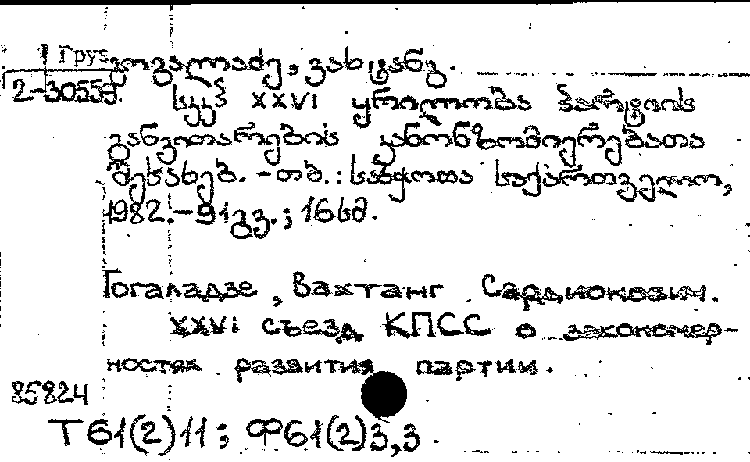 Груз.
2-30559.
გოგალაძე, ვახტანგ.
სკკპ XXVI ყრილობა პარტიის
განვითარების კანონზომიერებათა
შესახებ. - თბ.: საბჭოთა საქართველო,
1982. - 91გვ.; 16სმ.
Гогаладзе, Вахтанг Сардионович.
XXVI съезд КПСС о закономер-
ностях развития партии.
85824
Т61(2)11; Ф61(2)3,3.